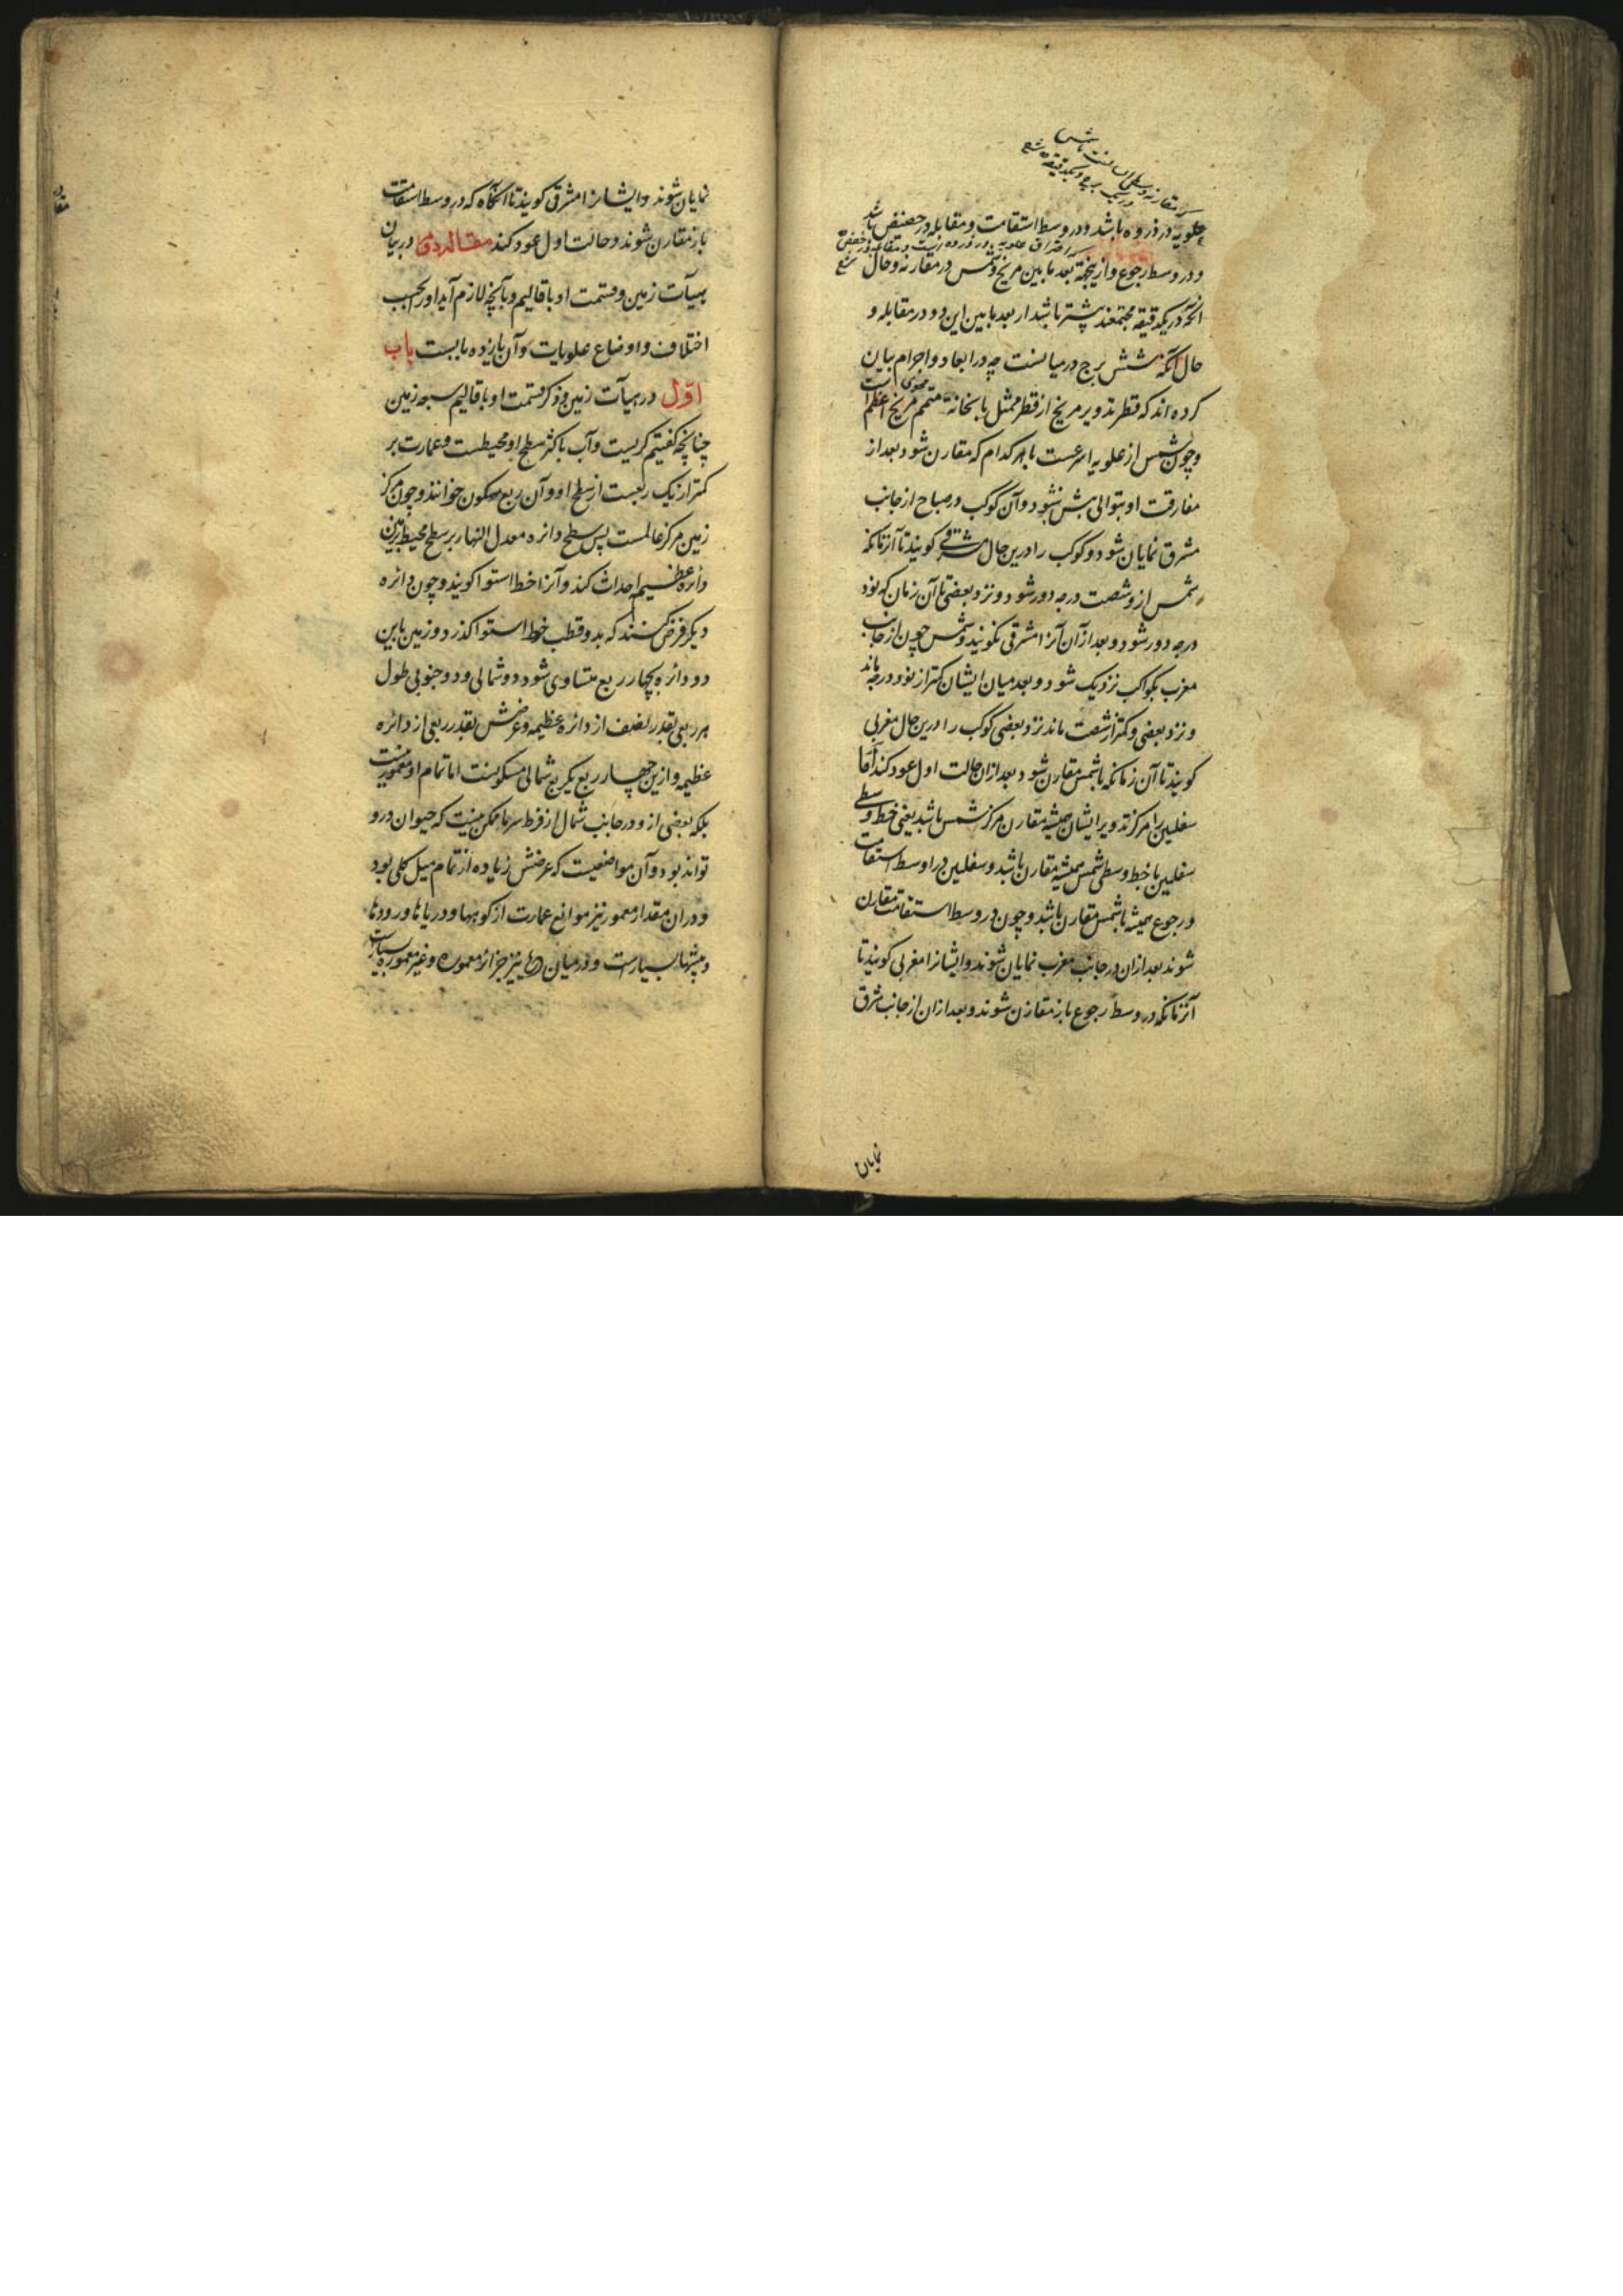 علویه در ذروه باشد و در وسط استقامت و مقابله در حضیض باشد
و در وسط رجوع و ازینجهة بعد ما بین مریخ و شمس در مقارنه و حال
آنکه در یکدقیقه مجتمعند بیشتر باشد از بعد ما بین این دو در مقابله و
حال آنکه شش برج در میانست چه در ابعاد و اجرام بیان
کرده اند که قطر تدویر مریخ از قطر ممثل با ثخانة متمم محوی مریخ اعظم است
و چون شمس از علویه اسرعست با هر کدام که مقارن شود بعد از
مفارقت او بتوالی پیش شود و آن کوکب در صباح از جانب
مشرق نمایان شود و کوکب را درین حال مشرقی کویند تا آنزمانکه
شمس ازو شصت درجه دور شود و نزد بعضی تا آن زمان که نود
درجه دور شود و بعد از آن آنرا مشرقی نکویند و شمس چون از جانب
مغرب بکواکب نزدیک شود و بعد میان ایشان کمتر از نود درجه ماند
و نزد بعضی و کمتر از شصت ماند نزد بعضی کوکب را درین حال مغربی
کویند تا آن زمانکه با شمس مقارن شود و بعد ازان حالت اول عود کند اما
سفلیین را مرکز تدویر ایشان همیشه مقارن مرکز شمس باشد یعنی خط وسطی
سفلیین با خط وسطی شمس همیشه مقارن باشد و سفلیین در اوسط استقامت
و رجوع همیشه با شمس مقارن باشد و چون در وسط استقامت مقارن
شوند بعد ازان در جانب مغرب نمایان شوند و ایشانرا مغربی کویند تا
آنزمانکه در وسط رجوع باز مقارن شوند و بعد ازان از جانب شرق
نمایان
نمایان شوند و ایشانرا مشرقی کویند تا آنکاه که در وسط استقامت
باز مقارن شوند و حالت اول عود کند مقاله دوم در بیان
هیأت زمین و قسمت او باقالیم و بآنچه لازم آید اورا بحسب
اختلاف و اوضاع علویات و آن یازده بابست باب
اول در هیأت زمین و ذکر قسمت او باقالیم سبعه زمین
چنانچه کفتیم کریست و آب باکثر سطح او محیطست و عمارت بر
کمتر از یک ربعست از سطح او و آن ربع مسکون خوانند و چون مرکز
زمین مرکز عالمست پس سطح دائره معدل النهار بر سطح محیط زمین
دائره عظیمه احداث کند و آنرا خط استوا کویند و چون دائره
دیکر فرض کنند که بدو قطب خط استوا کذرد و زمین باین
دو دائره بچهار ربع متساوی شود دو شمالی و دو جنوبی طول
هر ربعی بقدر نصف از دائره عظیمه و عرضش بقدر ربعی از دائره
عظیمه و ازین چهار ربع یکربع شمالی مسکونست اما تمام او معمور نیست
بلکه بعضی ازو در جانب شمال از فرط سرما ممکن نیست که حیوان درو
تواند بود و آن مواضعیست که عرضش زیاده از تمام میل کلی بود
و دران مقدار معمور نیز موانع عمارت از کوهها و دریاها و رودها
و بیشها بسیارست و در میان دریاها نیز جزائر معموره و غیر معموره بسیارست